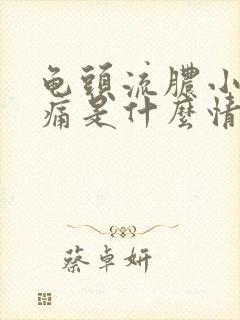 龟頭流膿小
痛是什麼情
蔡卓妍